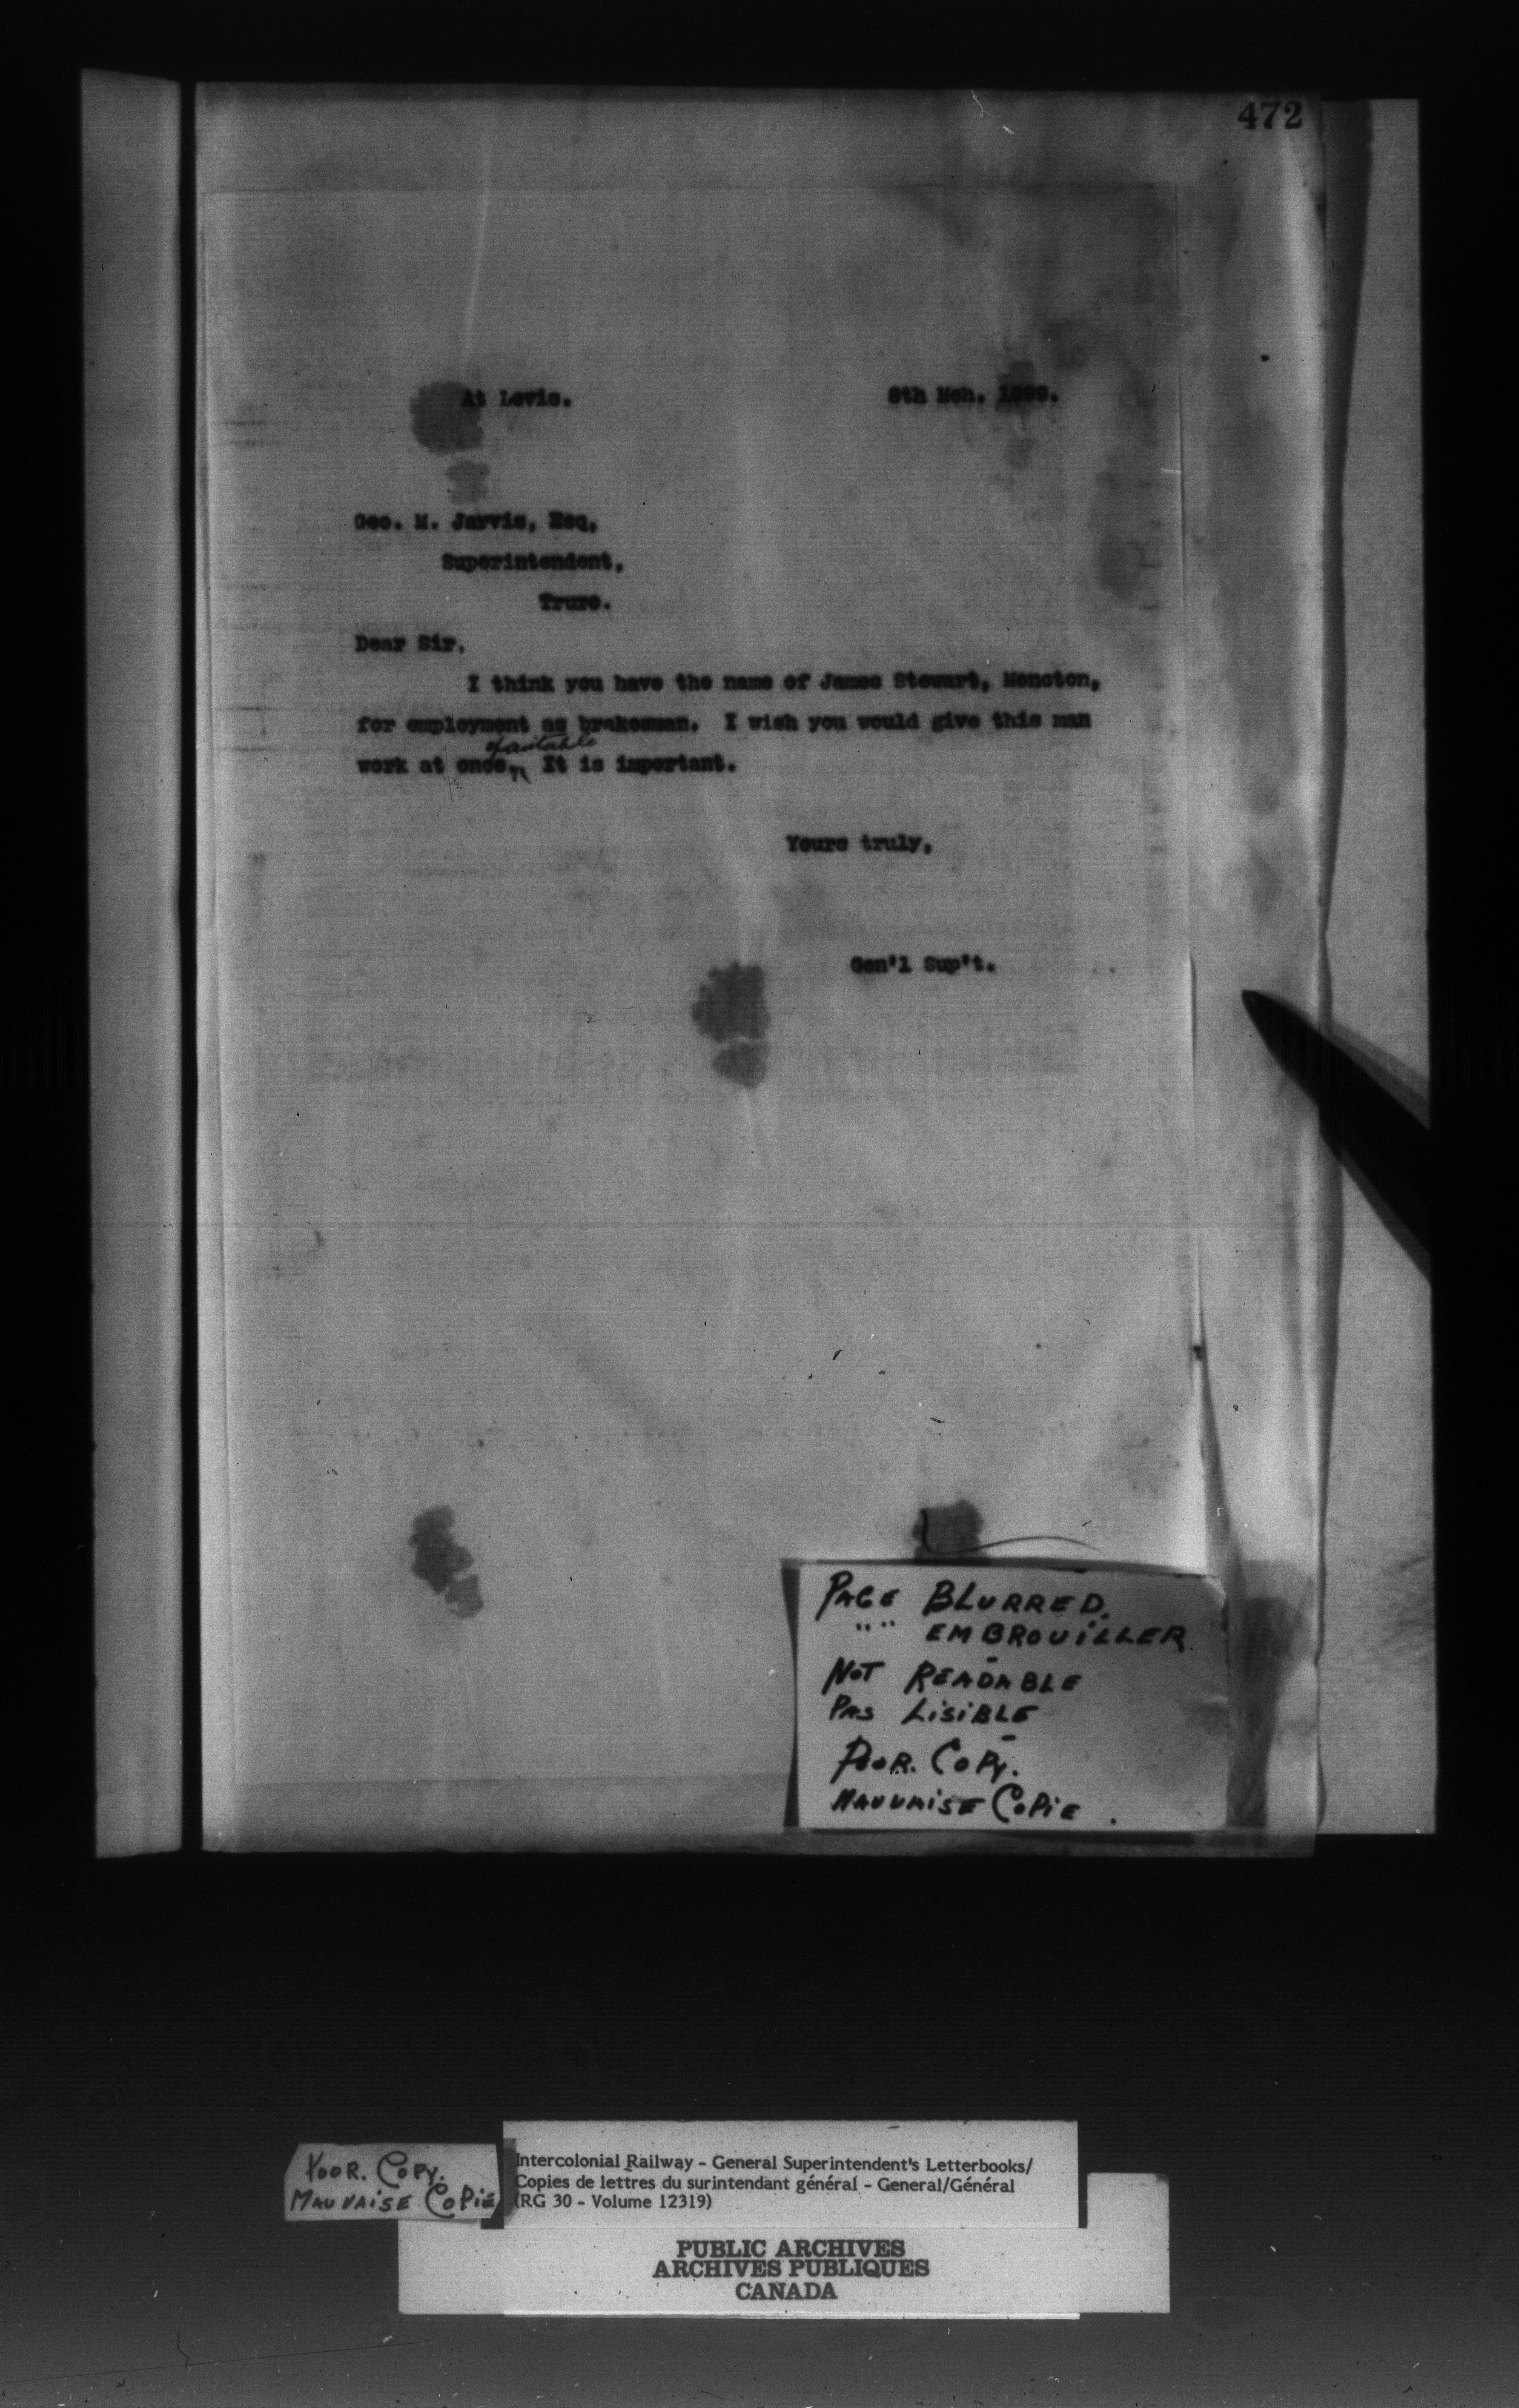 472
At Levis. 8th Mch. 1899.
Geo. M. Jarvis, Esq,
Superintendent,
Truro.
Dear Sir,
I think you have the name of James Stewart, Moncton,
for employment as brakesman. I wish you would give this man
if suitable
work at once. It is important.
Yours truly,
Gen'l Sup't.
PAGE BLURRED.
"" EMBROUILLER
NOT READABLE
PAS LISIBLE
POOR. COPY.
MAUVAISE COPIE.
POOR. COPY.
MAUVAISE COPIE
Intercolonial Railway - General Superintendent's Letterbooks/
Copies de lettres du surintendant général - General/Général
(RG 30 - Volume 12319)
PUBLIC ARCHIVES
ARCHIVES PUBLIQUES
CANADA